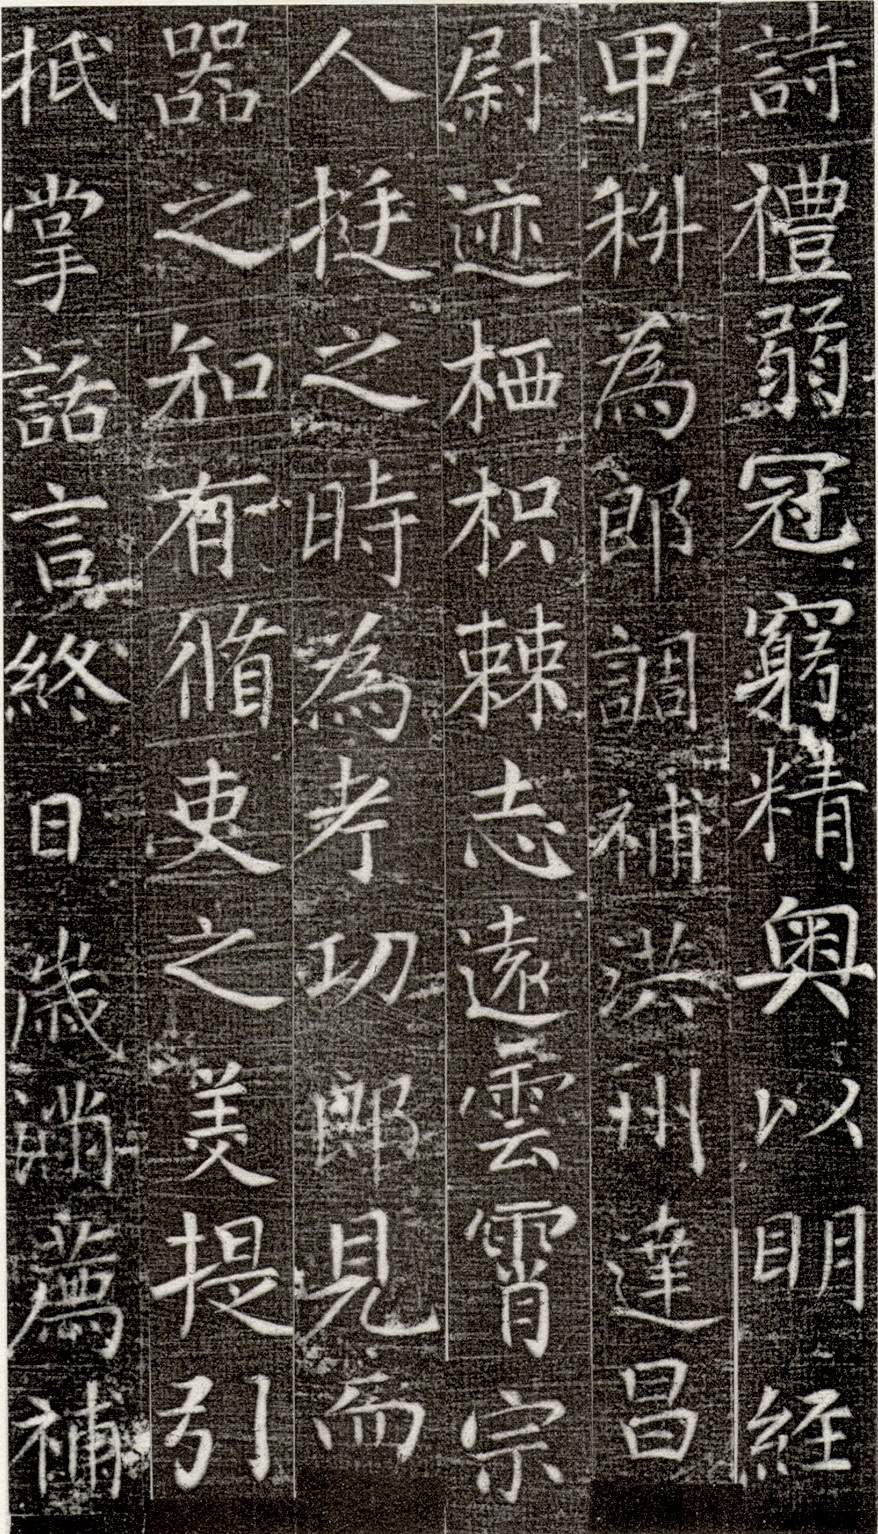 詩禮弱冠窮精奧以明經
甲科為郎調補洪州達昌
尉迹栖枳棘志遠雲霄宗
人挺之時為考功郎見而
器之知有脩吏之美提引
抵掌話言終日歲滿薦補